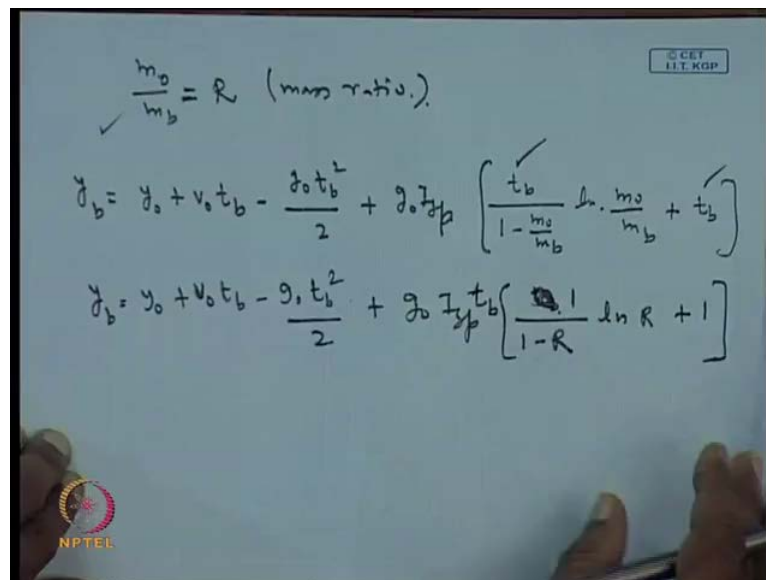 © CET
I.I.T. KGP
m₀/m_b = R (mass ratio.).
y_b = y₀ + v₀t_b - g₀t_b²/2 + g₀I_sp [ t_b/(1 - m₀/m_b) ln. m₀/m_b + t_b ]
y_b = y₀ + v₀t_b - g₀t_b²/2 + g₀ I_sp t_b [ 1/(1-R) ln R + 1 ]
NPTEL